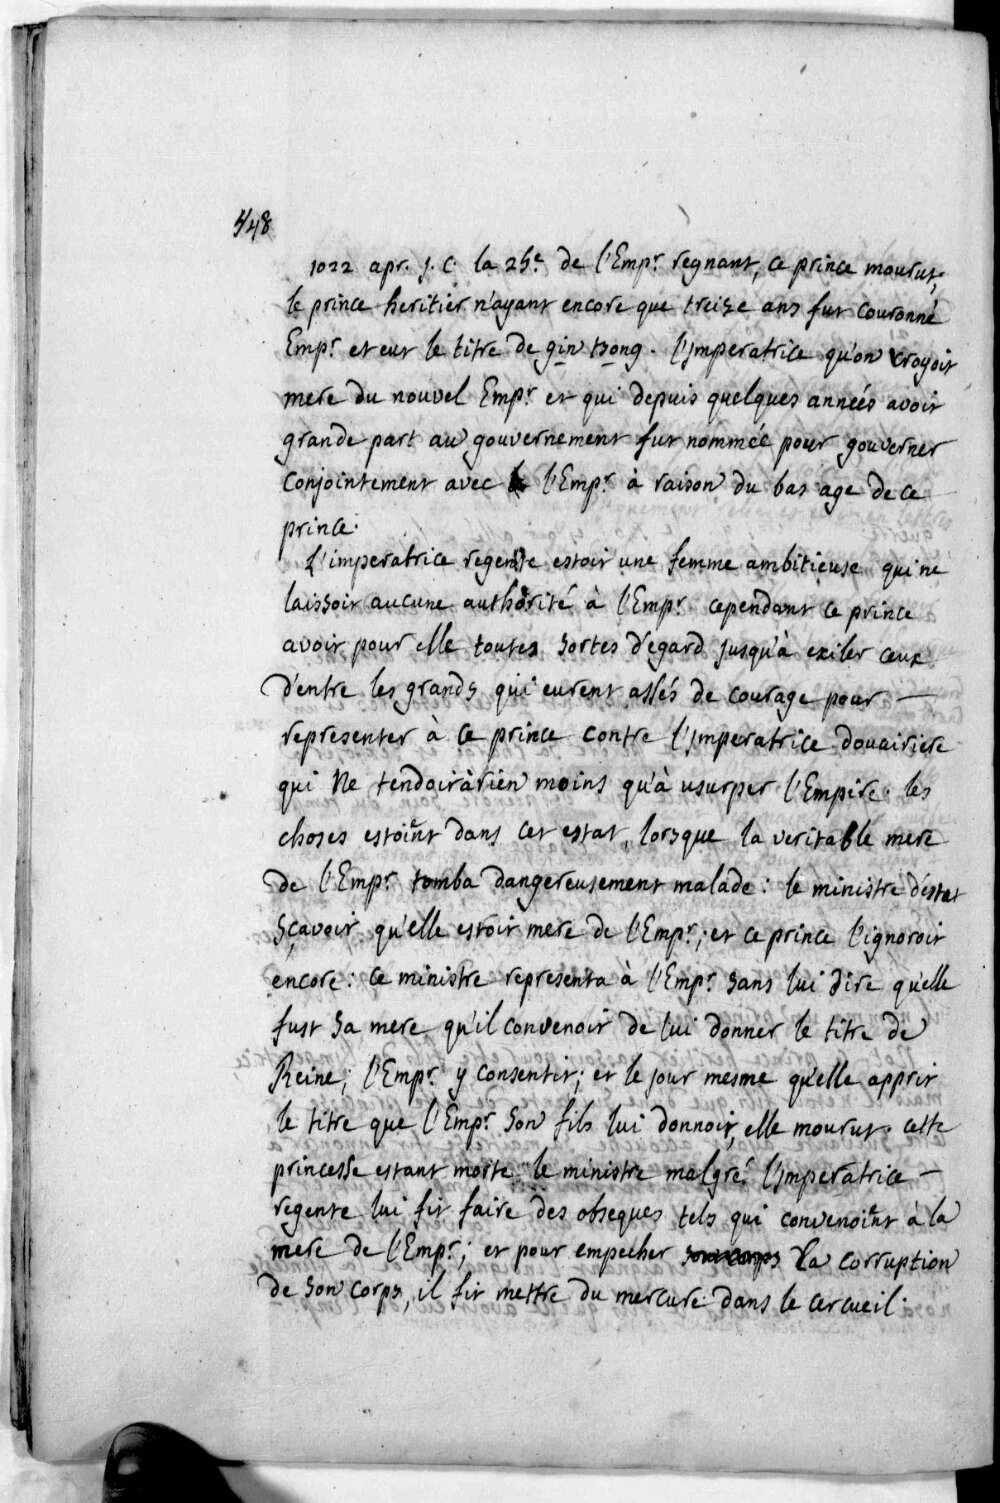 448
1022 apr. j. c. la 25.e de l'Emp.r regnant, ce prince mourut,
le prince heritier n'ayant encore que treize ans fut couronné
Emp.r et eut le titre de gin tsong. l'jmperatrice qu'on croyoit
mere du nouvel Emp.r et qui depuis quelques années avoit
grande part au gouvernement fut nommée pour gouverner
conjointement avec l'Emp.r à raison du bas age de ce
prince.
L'imperatrice regente estoit une femme ambitieuse qui ne
laissoit aucune authorité à l'Emp.r cependant ce prince
avoit pour elle toutes sortes d'egard jusqu'à exiler ceux
d'entre les grands qui eurent assés de courage pour —
representer à ce prince contre l'jmperatrice douairiere
qui ne tendoit à rien moins qu'à usurper l'Empire. les
choses estoient dans cet estat, lorsque la veritable mere
de l'Emp.r tomba dangereusement malade: le ministre d'estat
sçavoit qu'elle estoit mere de l'Emp.r; et ce prince l'ignoroit
encore: ce ministre representa à l'Emp.r sans lui dire qu'elle
fust sa mere qu'il convenoit de lui donner le titre de
Reine; l'Emp.r y consentit; et le jour mesme qu'elle apprit
le titre que l'Emp.r son fils lui donnoit, elle mourut. cette
princesse estant morte le ministre malgré l'jmperatrice —
regente lui fit faire des obseques tels qui convenoient à la
mere de l'Emp.r; et pour empecher son corps la corruption
de son corps, il fit mettre du mercure dans le cercueil.